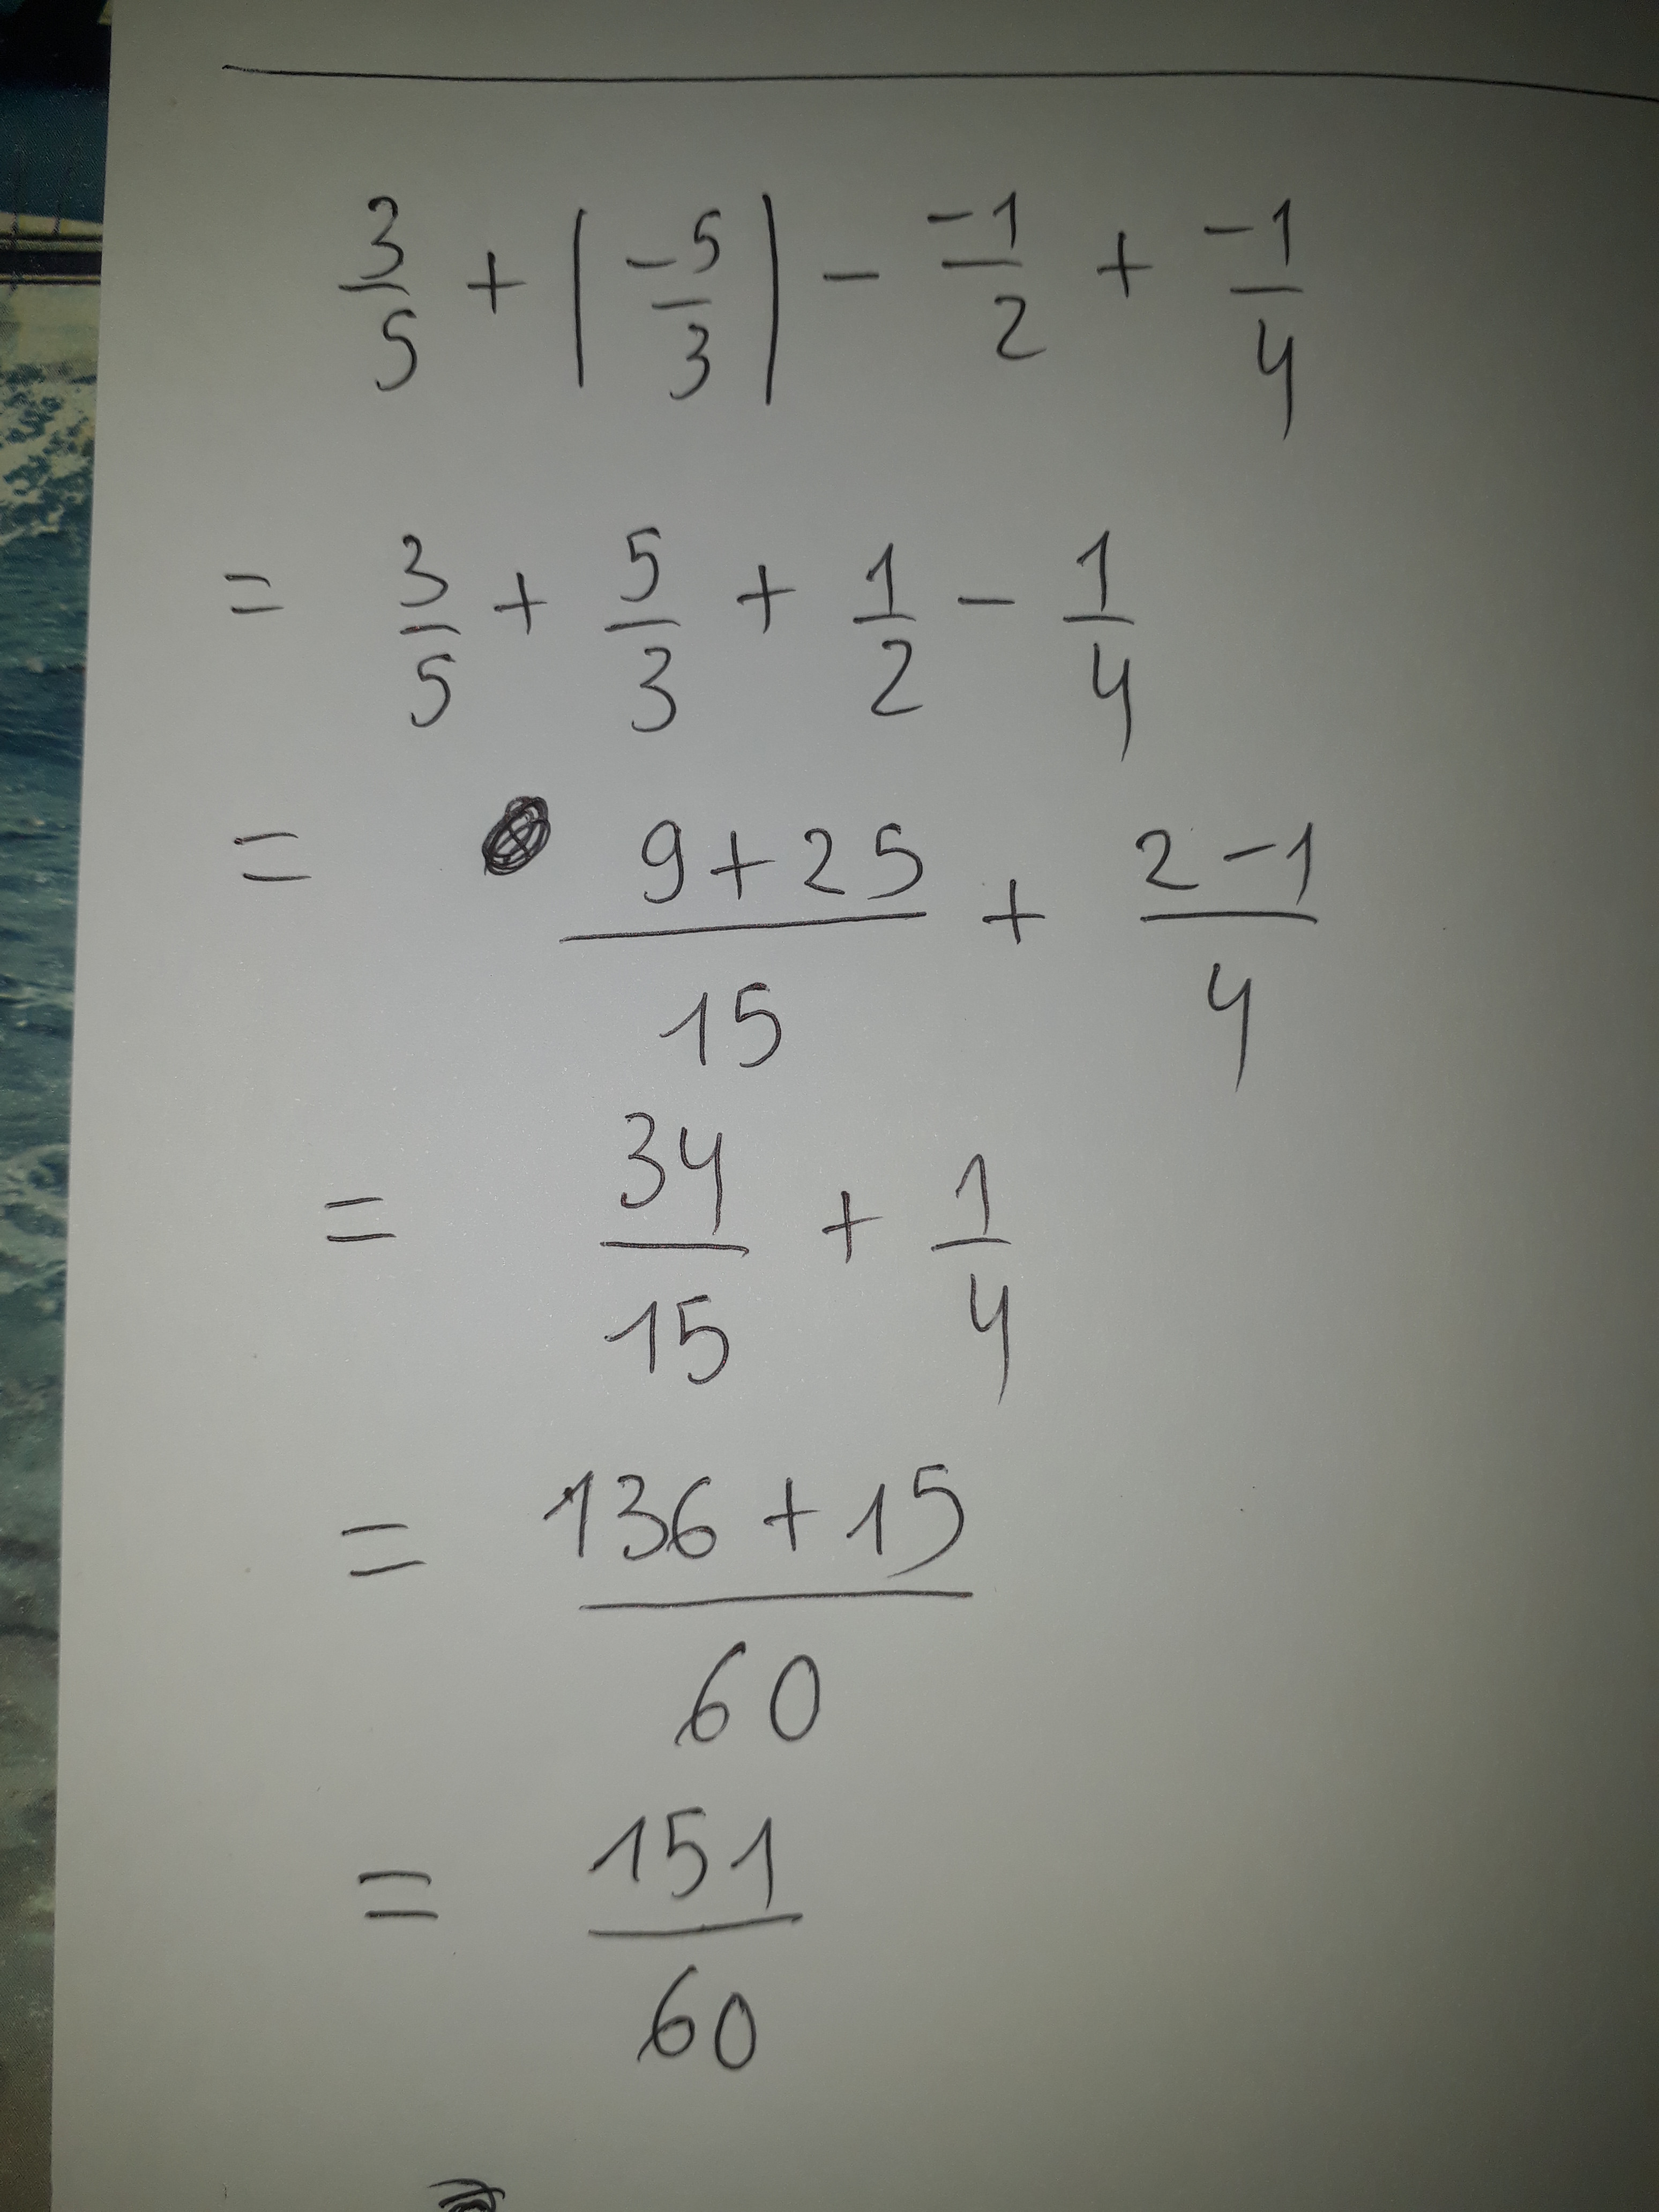 3/5 + |-5/3| - -1/2 + -1/4
= 3/5 + 5/3 + 1/2 - 1/4
= (9+25)/15 + (2-1)/4
= 34/15 + 1/4
= (136+15)/60
= 151/60